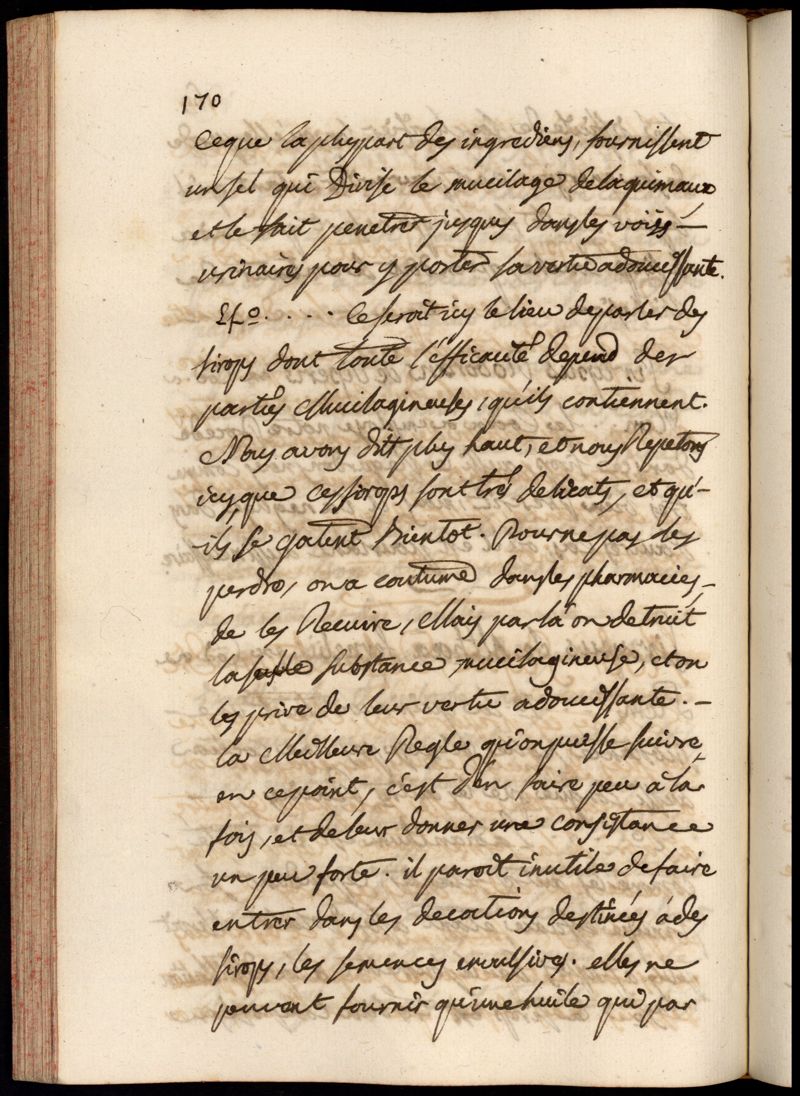 170
Ceque la pluspart des ingrediens, fournissent
un sel qui Divise le mucilage delaguimauve
et le fait penetrer jusques dans les voiës –
urinaires pour y porter sa vertu adoucissante.
Ce seroit icy le lieu deparler des
sirops dont toute l'éfficacité depend des
parties Mucilagineuses, qu'ils contiennent.
Nous avons dit plus haut, et nous Repetons
icy, que ces sirops sont tres delicats, et qu'-
ils se gatent Bientot. Pour ne pas les
perdre, on a coutume dans les pharmacies,
de les Recuire, Mais par la on detruit
la substance mucilagineuse, et on
les prive de leur vertu adoucissante. –
la Meilleure Regle qu'on puisse suivre,
en ce point, c'est d'en faire peu à la
fois, et de leur donner une consistance
un peu forte. il paroît inutile de faire
entrer dans les decoctions destinées à des
sirops, les semences emulsives. elles ne
peuvent fournir qu'une huile qui par